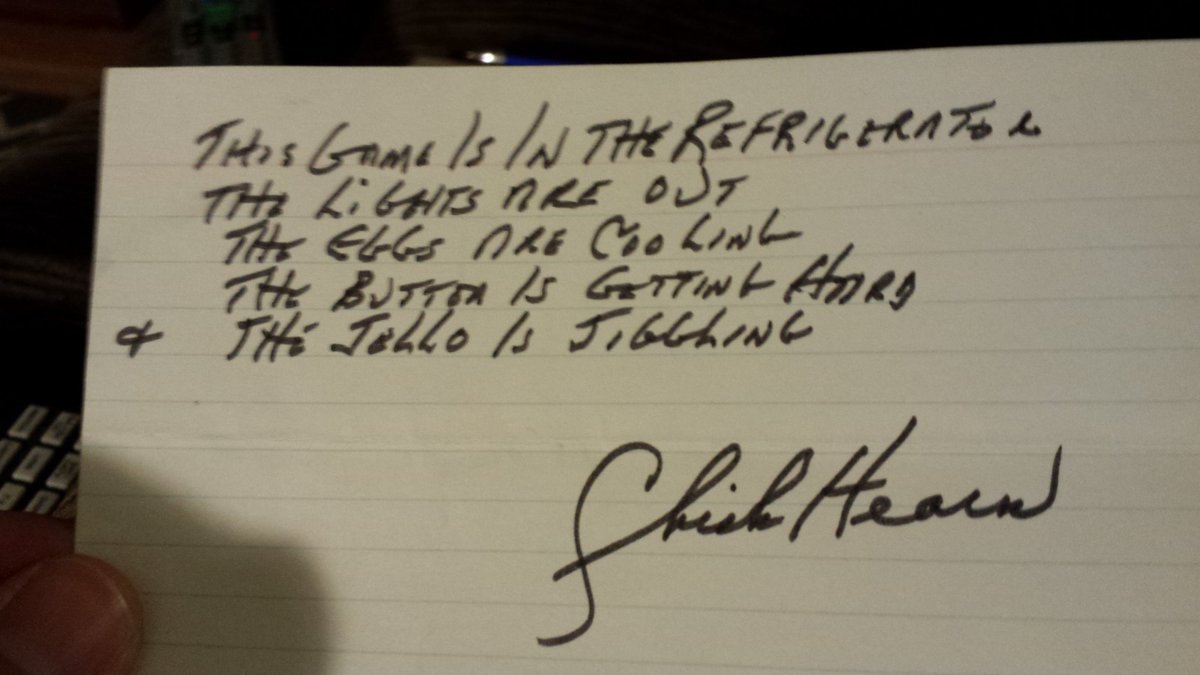 THIS GAME IS IN THE REFRIGERATOR
THE LIGHTS ARE OUT
THE EGGS ARE COOLING
THE BUTTER IS GETTING HARD
& THE JELLO IS JIGGLING
Chick Hearn